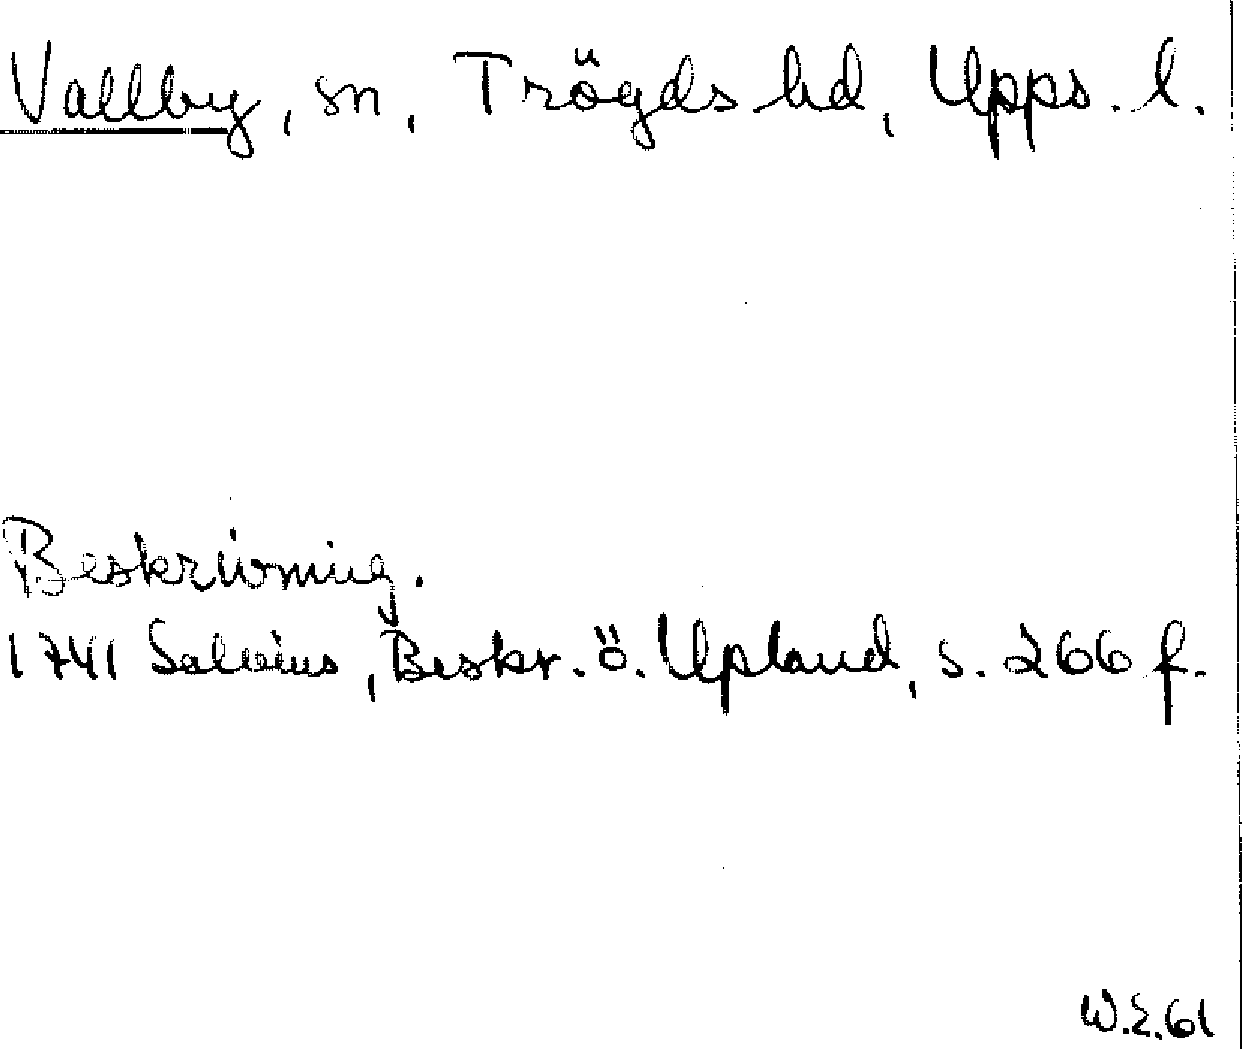 Vallby, sn, Trögds hd, Upps. l.
Beskrivning.
1741 Salvius, Beskr. ö. Upland, s. 266 f.
W.E.61